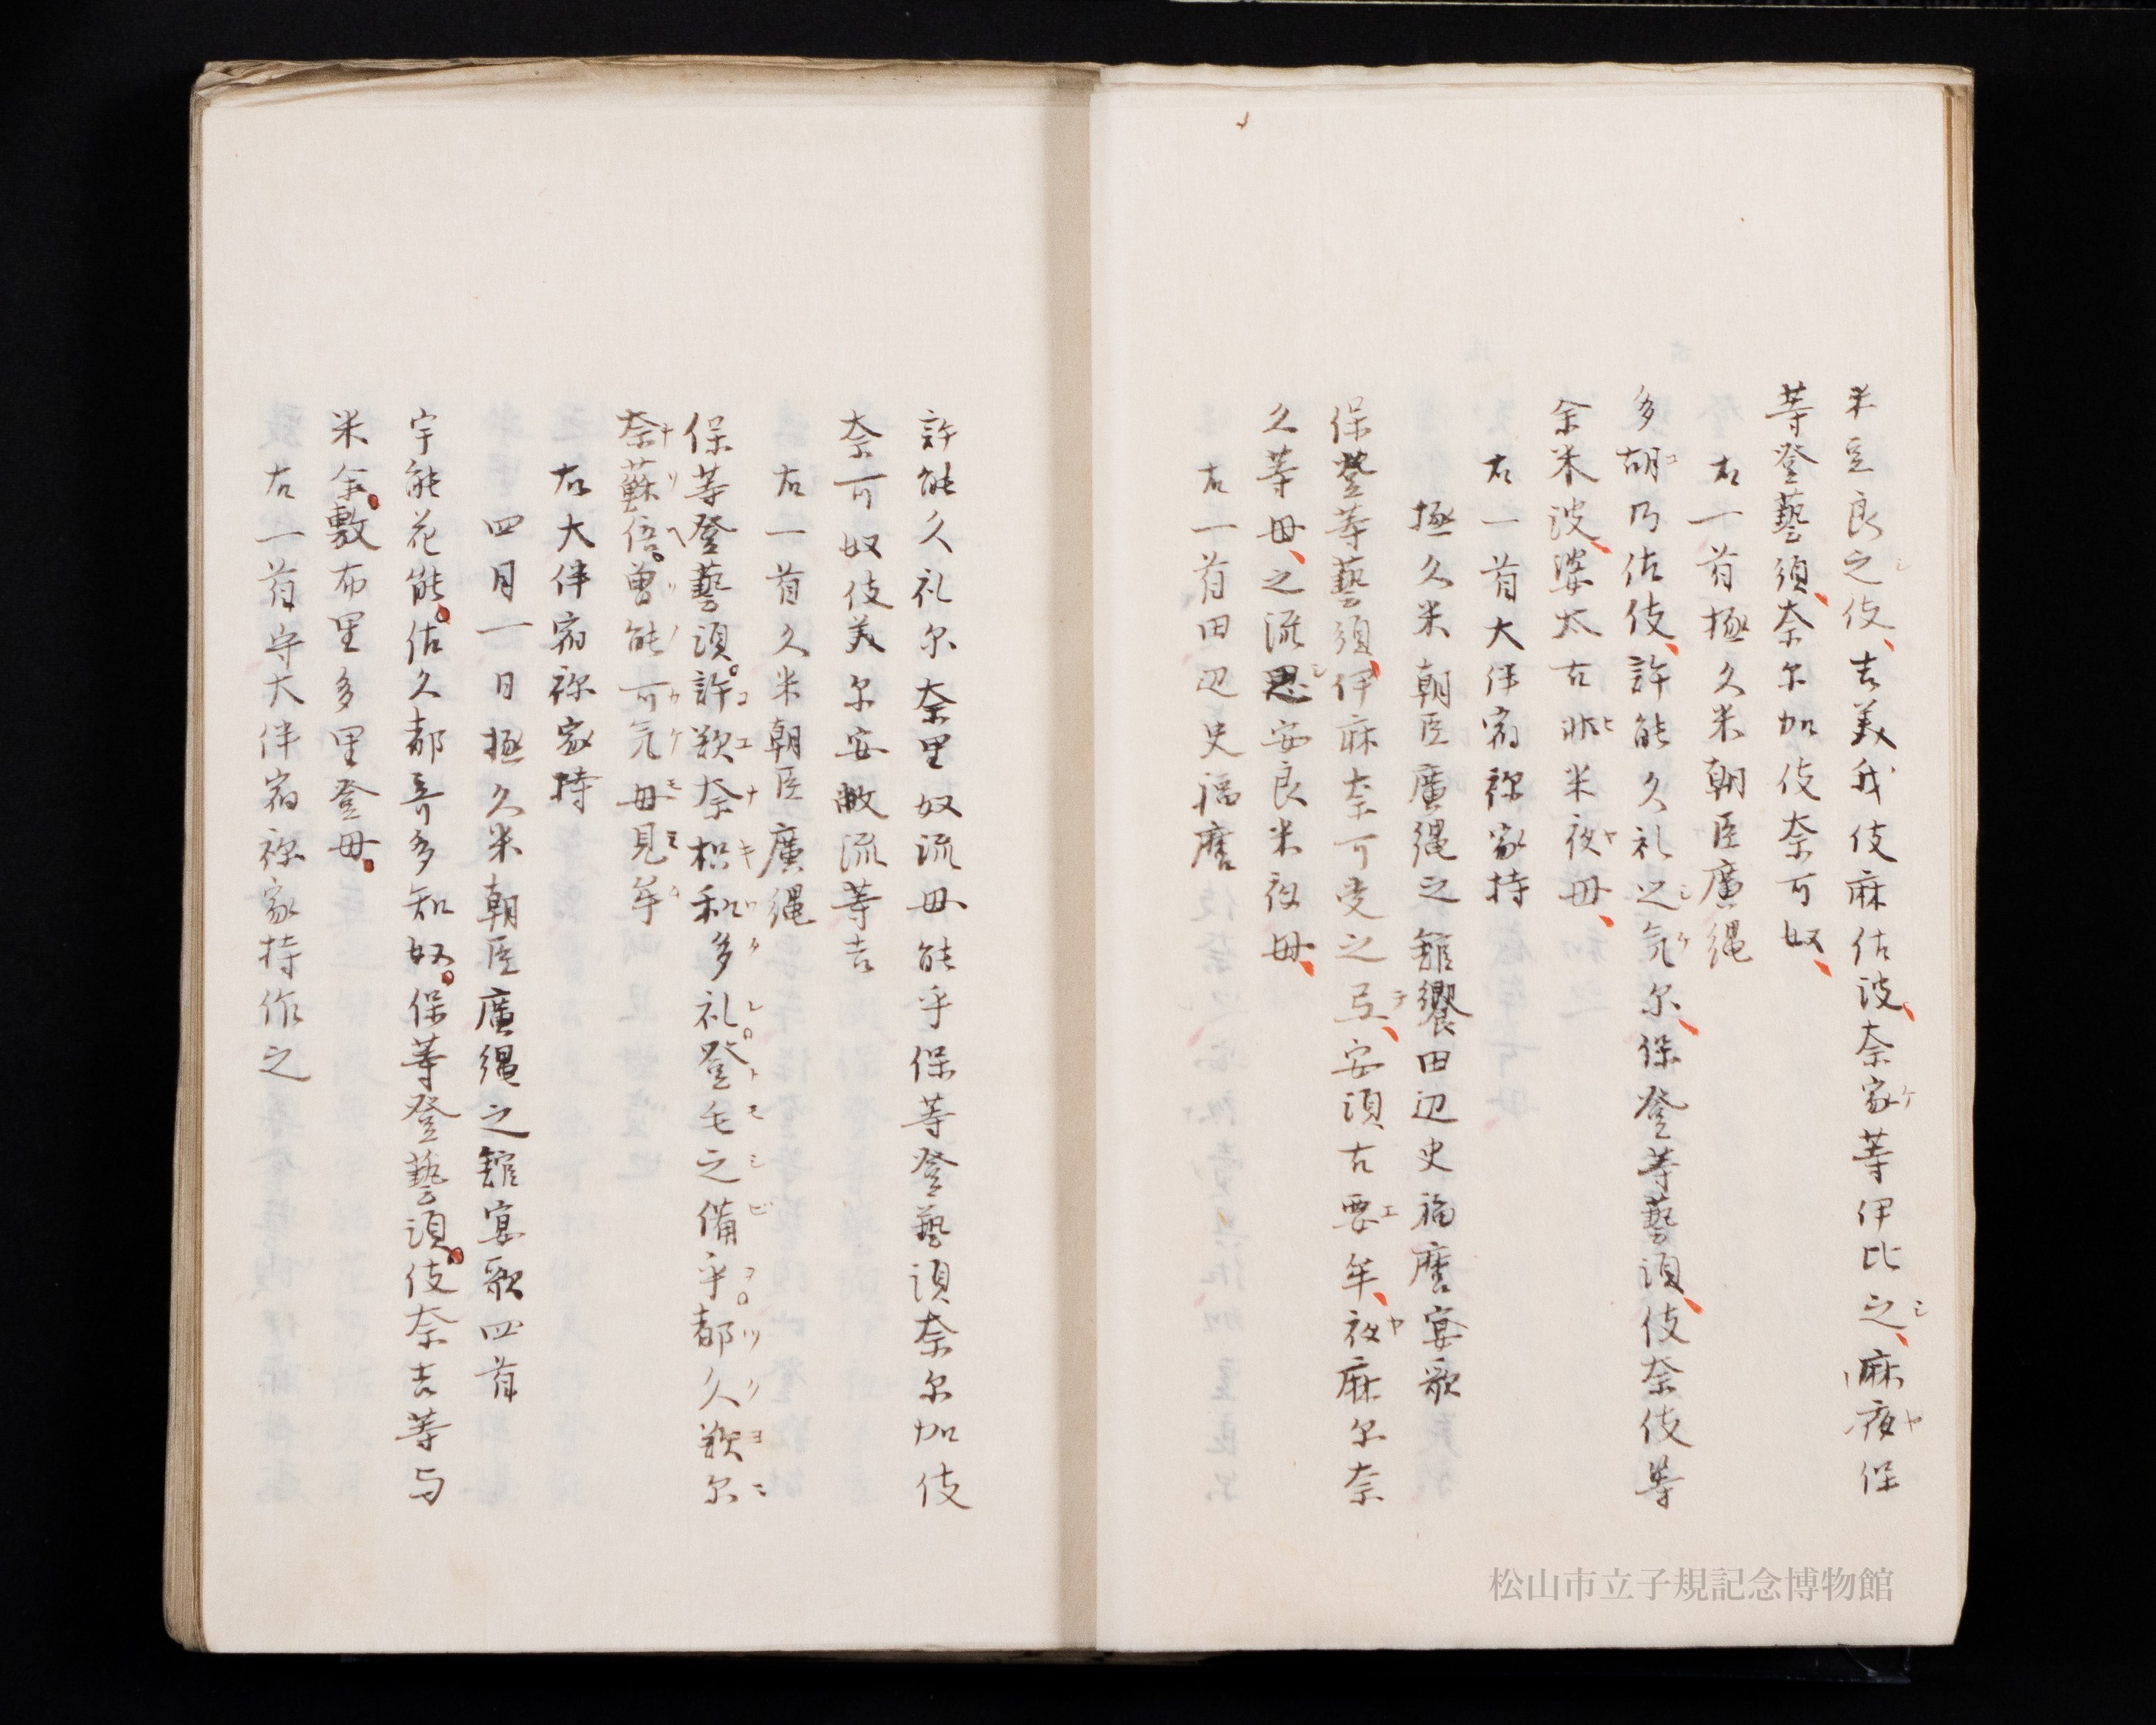 米豆良之伎吉美我伎麻佐波奈家等伊比之麻夜保
等登藝須奈尓加伎奈可奴
右一首掾久米朝臣廣縄
多胡乃佐伎許能久礼之氣尓保登等藝須伎奈伎等
余米波婆太古非米夜母
右一首大伴宿祢家持
掾久米朝臣廣縄之舘饗田辺史福麿宴歌
保登等藝須伊麻奈可受之弖安須古要牟夜麻尓奈
久等母之流思安良米夜母
右一首田辺史福麿
許能久礼尓奈里奴流母能乎保等登藝須奈尓加伎
奈可奴伎美尓安敝流等吉
右一首久米朝臣廣縄
保等登藝須許欲奈枳和多礼登毛之備乎都久欲尓
奈蘇倍曽能可氣母見牟
右大伴宿祢家持
四月一日掾久米朝臣廣縄之舘宴歌四首
宇能花能佐久都奇多知奴保等登藝須伎奈吉等与
米余敷布里多里登母
右一首守大伴宿祢家持作之
松山市立子規記念博物館